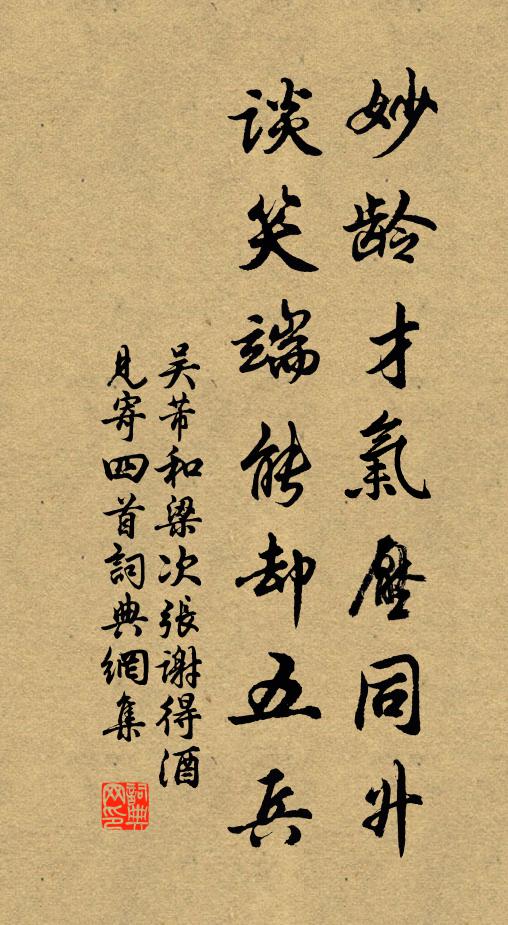 妙龄才氣壓同升
談笑端能却五兵
吴芾和梁次張謝得酒
見寄四首詞典網集
詞典网印